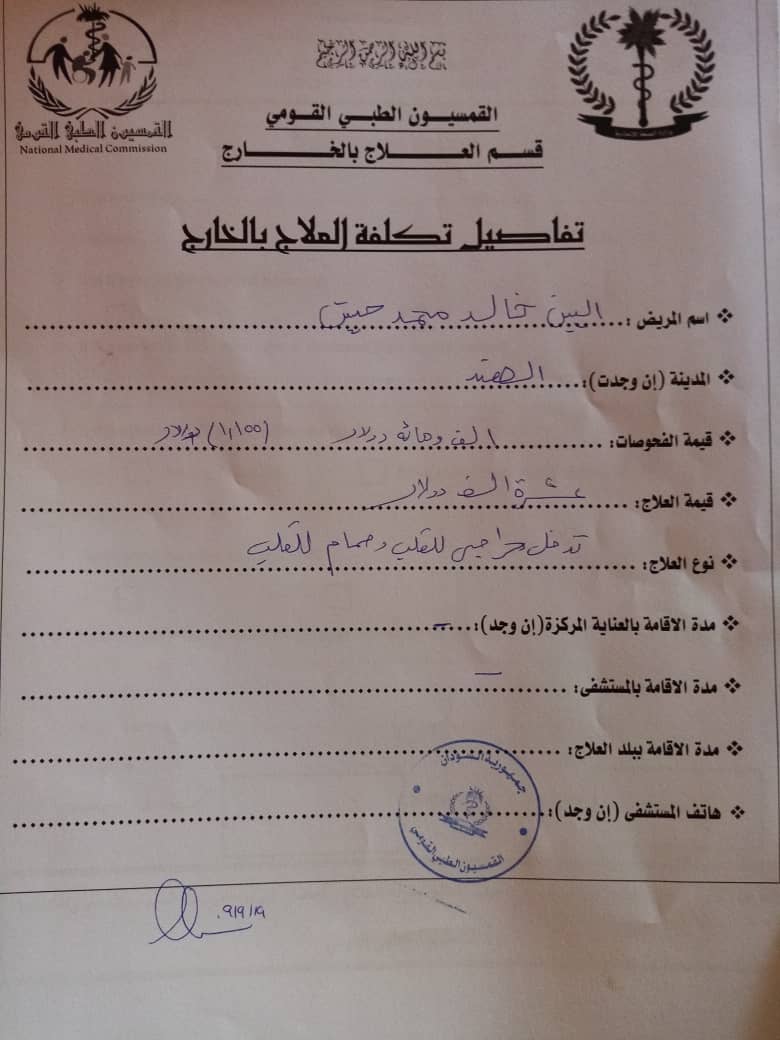 بسم الله الرحمن الرحيم
القمسيون الطبي القومي
National Medical Commission
وزارة الصحة الاتحادية
القمسيون الطبي القومي
قسم العلاج بالخارج
تفاصيل تكلفة العلاج بالخارج
❖ اسم المريض: خالد محمد
❖ المدينة (إن وجدت): الهند
❖ قيمة الفحوصات: الف ومائه دولار (١,١٠٠) دولار
❖ قيمة العلاج: عشرة الف دولار
❖ نوع العلاج: تدخل جراحي للقلب وصمام للقلب
❖ مدة الاقامة بالعناية المركزة(إن وجد): –
❖ مدة الاقامة بالمستشفى: –
❖ مدة الاقامة ببلد العلاج:
❖ هاتف المستشفى (إن وجد):
جمهورية السودان
القمسيون الطبي القومي